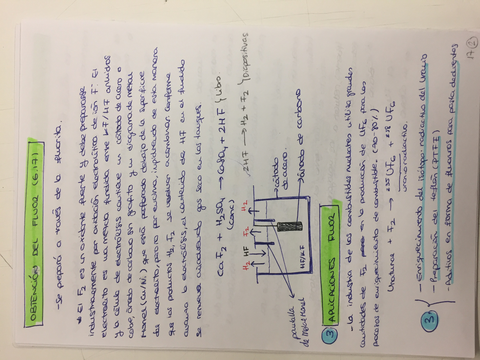 OBTENCIÓN DEL FLUOR (6.17)
- Se preparó a través de la fluorita.
* El F2 es un oxidante fuerte y debe prepararse
industrialmente por oxidación electrolítica de ión F⁻. El
electrolito es una mezcla fundida entre KF/HF anhidros
y la célula de electrólisis contiene un cátodo de acero o
cobre, ánodo de carbono sin grafito y un diafragma de metal
Monel (Cu/Ni) que está perforado debajo de la superficie
del electrolito, pero no por encima, impidiendo de esta manera
que los productos H2, F2 se vuelvan a combinar. Conforme
avanza la electrólisis, el contenido de HF en el fundido
se renueva adicionando gas seco en los tanques
CaF2 + H2SO4 → CaSO4 + 2HF } libro
(conc)
2HF → H2 + F2 } Diapositivas
H2 HF F2 H2
cátodo
de acero.
ánodo de carbono
HF/KF
pantalla
de Metal Monel
3) APLICACIONES FLUOR:
- La industria de los combustibles nucleares utiliza grandes
cantidades de F2 en la producción de UF6 para los
procesos de enriquecimiento de combustible. (70-80%)
Uranio + F2 → ²³⁵UF6 + ²³⁸UF6
uranio radiactivo.
3.
- Enriquecimiento del isótopo radiactivo del Uranio
- Preparación del teflón (PTFE)
- Aditivos en forma de fluoruros para pasta dentífrica
17 (2)